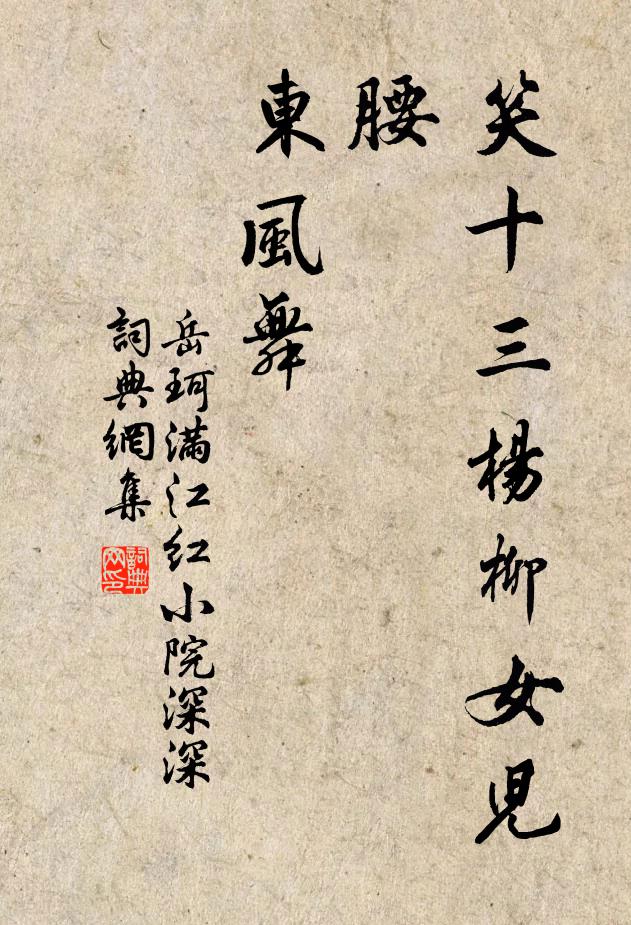 笑十三楊柳女兒
腰
東風舞
岳珂滿江红小院深深
詞典網集
詞典网印